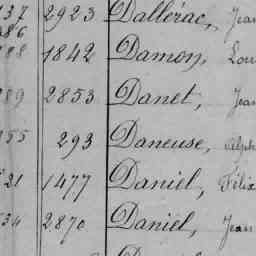 37 2923 Dallérac, Jean
86
88 1842 Damon, Lou
89 2853 Danet, Jean
55 293 Daneuse, Alph
21 1477 Daniel, Félix
34 2870 Daniel, Jean